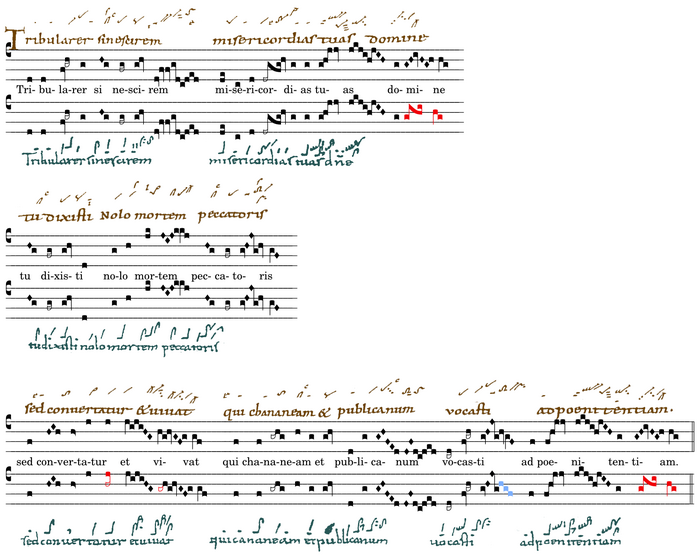 Tribularer sinescirem misericordias tuas domine
Tri- bu- la-rer si ne-sci- rem mi-se-ri-cor- di- as tu- as do- mi- ne
Tribularer sinescirem misericordias tuas dñe
tu dixisti Nolo mortem peccatoris
tu di-xis- ti no-lo mor-tem pec- ca- to- ris
tu dixisti nolo mortem peccatoris
sed convertatur & vivat qui chananeam & publicanum vocasti ad poenitentiam.
sed con-ver-ta-tur et vi- vat qui cha-na-ne-am et pub-li- ca- num vo-cas-ti ad poe- ni- ten- ti- am.
sed convertatur & vivat qui cananeam et publicanum vocasti ad poenitentiam